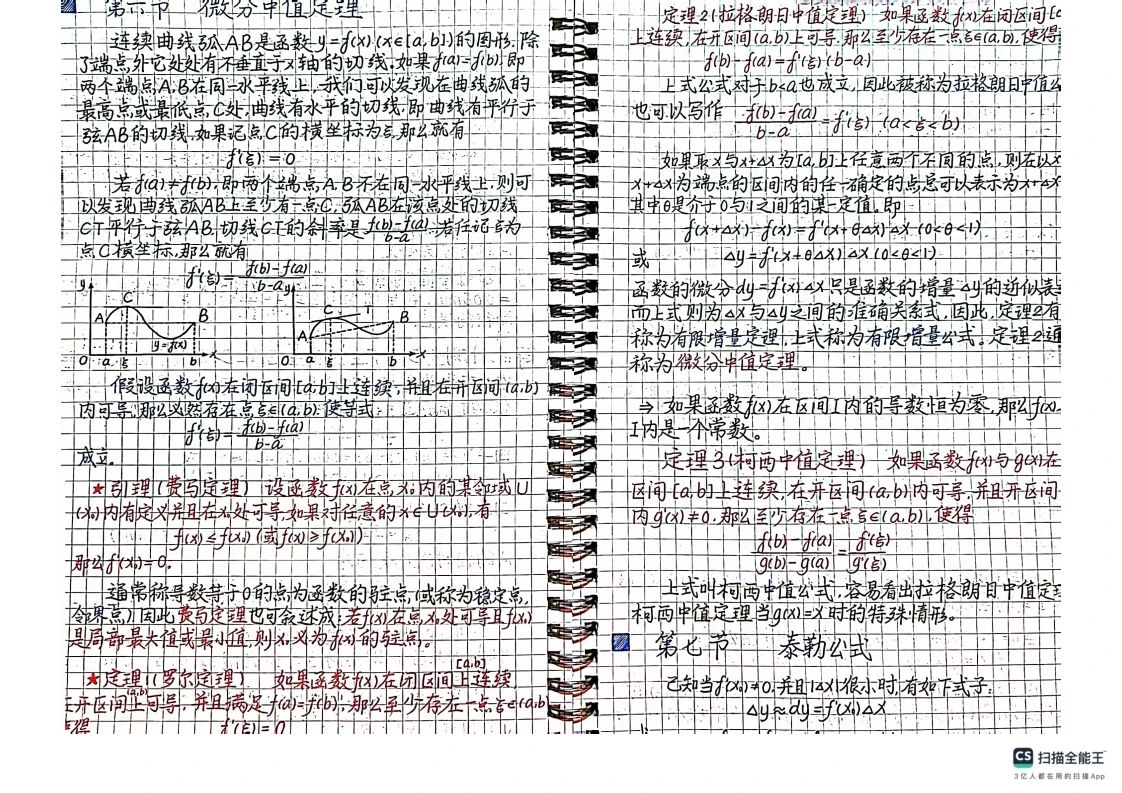 第六节 微分中值定理
连续曲线弧AB是函数y=f(x)(x∈[a,b])的图形.除
了端点外它处处有不垂直于x轴的切线.如果f(a)=f(b).即
两个端点A.B在同一水平线上.我们可以发现在曲线弧的
最高点或最低点C处,曲线有水平的切线.即曲线有平行于
弦AB的切线.如果记点C的横坐标为ξ,那么就有
f'(ξ)=0
若f(a)≠f(b),即两个端点A.B不在同一水平线上,则可
以发现曲线弧AB上至少有一点C,弧AB在该点处的切线
CT平行于弦AB,切线CT的斜率是f(b)-f(a)/b-a.若任记ξ为
点C横坐标,那么就有
f'(ξ)=f(b)-f(a)/b-a
y C A B y=f(x) 0 a ξ b x
y C T A B 0 a ξ b x
假设函数f(x)在闭区间[a,b]上连续,并且在开区间(a,b)
内可导,那么必然存在点ξ∈(a,b).使等式
f'(ξ)=f(b)-f(a)/b-a
成立。
★引理(费马定理) 设函数f(x)在点x₀内的某邻域U
(x₀)内有定义并且在x₀处可导,如果对任意的x∈U(x₀),有
f(x)≤f(x₀)(或f(x)≥f(x₀))
那么f'(x₀)=0。
通常称导数等于0的点为函数的驻点,(或称为稳定点,
令界点)因此费马定理也可叙述成:若f(x)在点x₀处可导且f(x₀)
是局部最大值或最小值,则x₀义为f(x)的驻点。
★定理1(罗尔定理) 如果函数f(x)在闭区间[a,b]上连续,
在开区间(a,b)上可导,并且满足f(a)=f(b),那么至少存在一点ξ∈(a,b)
使得
f'(ξ)=0
定理2(拉格朗日中值定理) 如果函数f(x)在闭区间[a
上连续,在开区间(a,b)上可导.那么至少存在一点ξ∈(a,b).使得
f(b)-f(a)=f'(ξ)(b-a)
上式公式对于b<a也成立,因此被称为拉格朗日中值公
也可以写作 f(b)-f(a)/b-a=f'(ξ) (a<ξ<b)
如果取x与x+△x为[a,b]上任意两个不同的点,则在以x
x+△x为端点的区间内的任一确定的点总可以表示为x+△x
其中θ是介于0与1之间的某一定值。即
f(x+△x)-f(x)=f'(x+θ△x)△x(0<θ<1)
或 △y=f'(x+θ△x)△x(0<θ<1)
函数的微分dy=f'(x)△x只是函数的增量△y的近似表
而上式则为△x与△y之间的准确关系式,因此,定理2有
称为有限增量定理,上式称为有限增量公式。定理2通
称为微分中值定理。
⇒ 如果函数f(x)在区间I内的导数恒为零,那么f(x)
I内是一个常数。
定理3(柯西中值定理) 如果函数f(x)与g(x)在
区间[a,b]上连续,在开区间(a,b)内可导,并且开区间
内g'(x)≠0.那么至少存在一点ξ∈(a,b),使得
f(b)-f(a)/g(b)-g(a)=f'(ξ)/g'(ξ)
上式叫柯西中值公式,容易看出拉格朗日中值定
柯西中值定理当g(x)=x时的特殊情形。
第七节 泰勒公式
已知当f'(x₀)≠0,并且|△x|很小时,有如下式子:
△y≈dy=f'(x₀)△x
CS 扫描全能王
3亿人都在用的扫描App